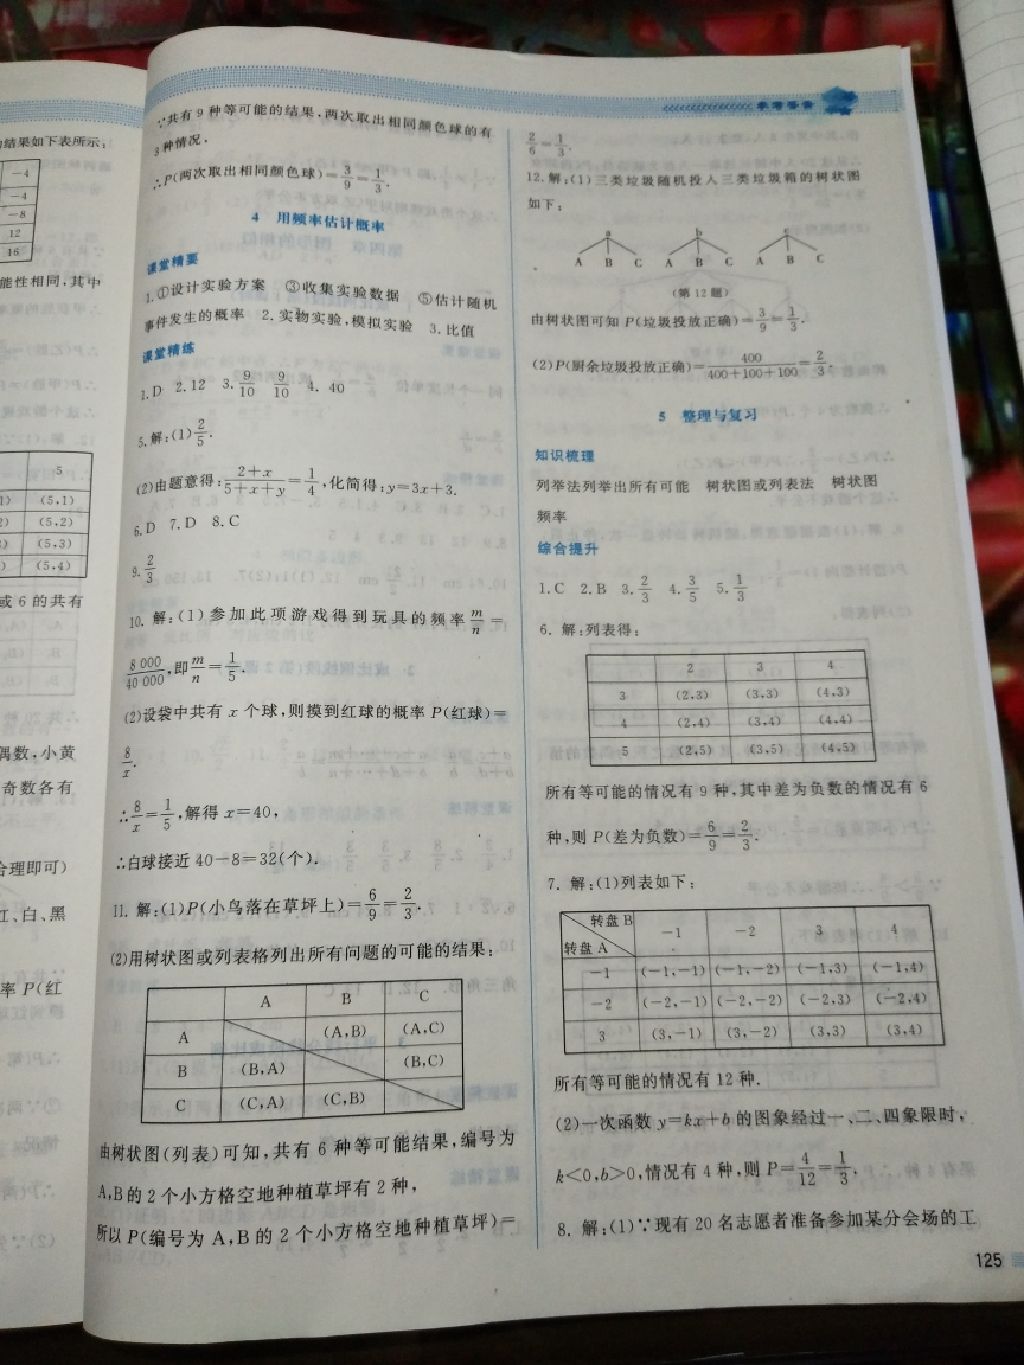 的结果如下表所示:
-4
-4
-8
12
16
能性相同,其中
5
(5,1)
(5,2)
(5,3)
(5,4)
或6的共有
偶数,小黄
奇数各有
合理即可)
红、白、黑
率P(红
参考答案
∵共有9种等可能的结果,两次取出相同颜色球的有
3种情况.
∴P(两次取出相同颜色球)=3/9=1/3.
4 用频率估计概率
课堂精要
1.①设计实验方案 ③收集实验数据 ⑤估计随机
事件发生的概率 2.实物实验,模拟实验 3.比值
课堂精练
1.D 2.12 3.9/10 9/10 4.40
5.解:(1)2/5.
(2)由题意得:(2+x)/(5+x+y)=1/4,化简得:y=3x+3.
6.D 7.D 8.C
9.2/3
10.解:(1)参加此项游戏得到玩具的频率m/n=
8 000/40 000,即m/n=1/5.
(2)设袋中共有x个球,则摸到红球的概率P(红球)=
8/x.
∴8/x=1/5,解得x=40,
∴白球接近40-8=32(个).
11.解:(1)P(小鸟落在草坪上)=6/9=2/3.
(2)用树状图或列表格列出所有问题的可能的结果:
A B C
A (A,B) (A,C)
B (B,A) (B,C)
C (C,A) (C,B)
由树状图(列表)可知,共有6种等可能结果,编号为
A,B的2个小方格空地种植草坪有2种,
所以P(编号为A,B的2个小方格空地种植草坪)=
2/6=1/3.
12.解:(1)三类垃圾随机投入三类垃圾箱的树状图
如下:
a b c
A B C A B C A B C
(第12题)
由树状图可知P(垃圾投放正确)=3/9=1/3.
(2)P(厨余垃圾投放正确)=400/(400+100+100)=2/3.
5 整理与复习
知识梳理
列举法列举出所有可能 树状图或列表法 树状图
频率
综合提升
1.C 2.B 3.2/3 4.3/5 5.1/3
6.解:列表得:
2 3 4
3 (2,3) (3,3) (4,3)
4 (2,4) (3,4) (4,4)
5 (2,5) (3,5) (4,5)
所有等可能的情况有9种,其中差为负数的情况有6
种,则P(差为负数)=6/9=2/3.
7.解:(1)列表如下:
转盘B -1 -2 3 4
转盘A
-1 (-1,-1) (-1,-2) (-1,3) (-1,4)
-2 (-2,-1) (-2,-2) (-2,3) (-2,4)
3 (3,-1) (3,-2) (3,3) (3,4)
所有等可能的情况有12种.
(2)一次函数y=kx+b的图象经过一、二、四象限时,
k<0,b>0,情况有4种,则P=4/12=1/3.
8.解:(1)∵现有20名志愿者准备参加某分会场的工
125